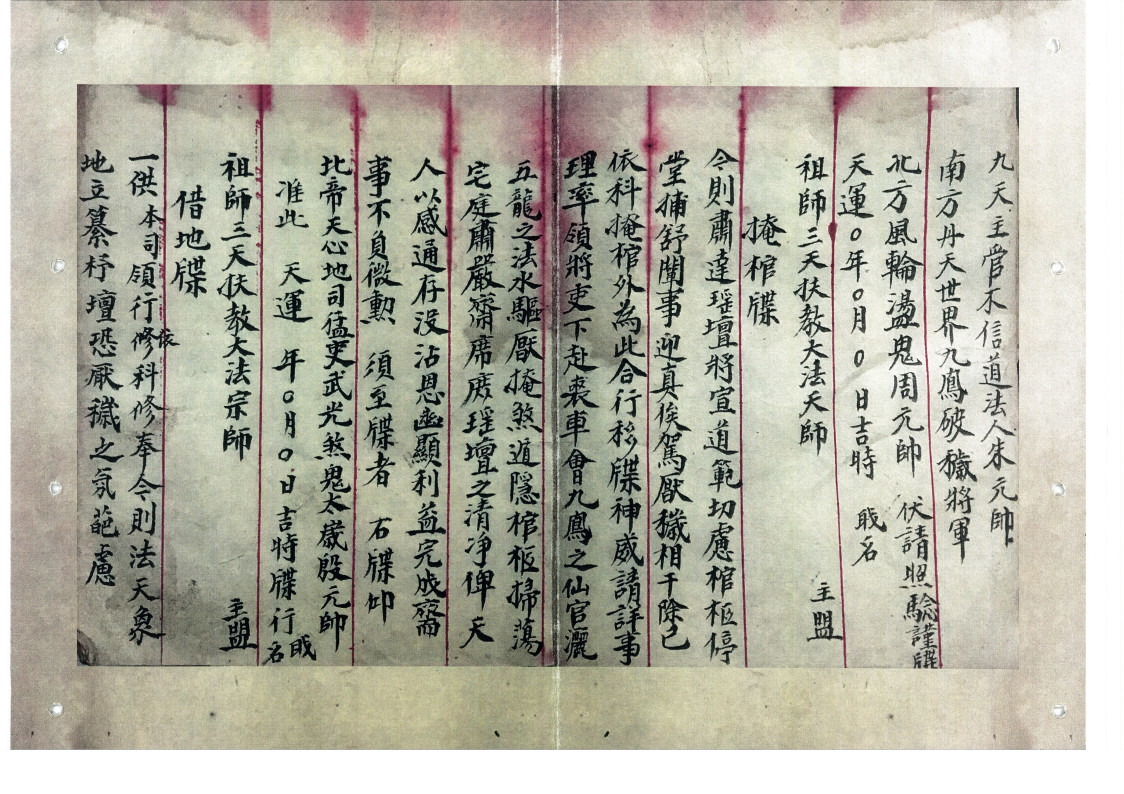 九天主管不信道法人朱元帥
南方丹天世界九鳳破穢將軍
北方風輪盪鬼周元帥 伏請照驗謹牒
天運0年0月0日吉時 職名
祖師三天扶教大法天師 主盟
掩棺牒
令則肅達瑶壇將宣道範切慮棺柩停
堂捕舒闡事迎真俟駕厭穢相干除已
依科掩棺外為此合行移牒神威請詳事
理率領將吏下赴喪車會九鳳之仙官灑
五龍之法水驅厭掩煞遁隱棺柩掃蕩
宅庭肅嚴齋席庶瑶壇之清净俾天
人以感通存没沾恩幽顯利益完成齋
事不負微勲 須至牒者 右牒仰
北帝天心地司猛吏武光煞鬼太歲殷元帥
准此 天運 年0月0日吉時牒行職名
祖師三天扶教大法宗師 主盟
借地牒
一供 本司領行修依科修奉令則法天象
地立纂杼壇恐厭穢之氛葩慮